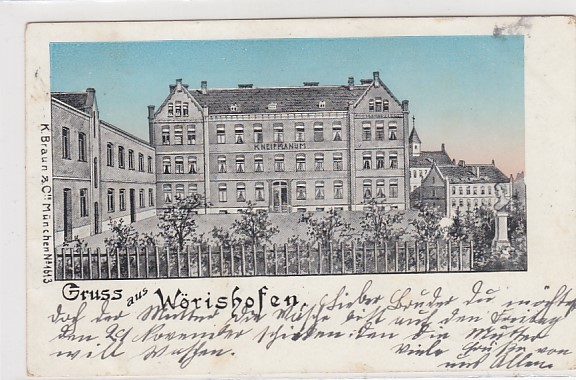 KNEIPPIANUM
K. Braun & Co. München No 1613
Gruss aus Wörishofen.
Lieber Bruder du möchtest
doch der Mutter die Wäsche bis auf den Freitag
den 24 November schicken den die Mutter
will Waschen. Viele Grüße von
uns Allen.